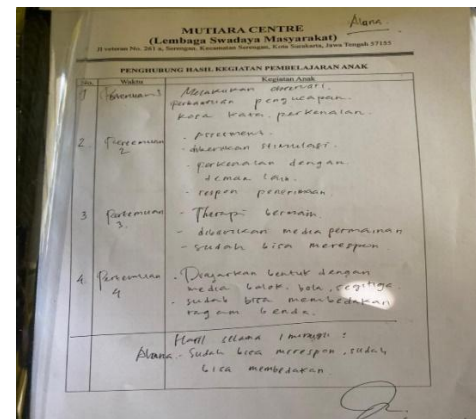 Alana
MUTIARA CENTRE
(Lembaga Swadaya Masyarakat)
Jl veteran No. 261 a, Serengan, Kecamatan Serengan, Kota Surakarta, Jawa Tengah 57155
PENGHUBUNG HASIL KEGIATAN PEMBELAJARAN ANAK
Waktu Kegiatan Anak
1 Pertemuan 1 Melakukan observasi,
pengucapan
kosa kata, perkenalan.
2. Pertemuan 2 - Assessment.
- diberikan stimulasi.
- perkenalan dengan
teman lain.
- respon penerimaan
3 Pertemuan 3. - Therapi bermain.
- diberikan media permainan
- sudah bisa merespon
4. Pertemuan 4 - Diajarkan bentuk dengan
media balok, bola, segitiga
- sudah bisa membedakan
ragam benda.
Hasil selama 1 minggu :
Alana - Sudah bisa merespon, sudah
bisa membedakan